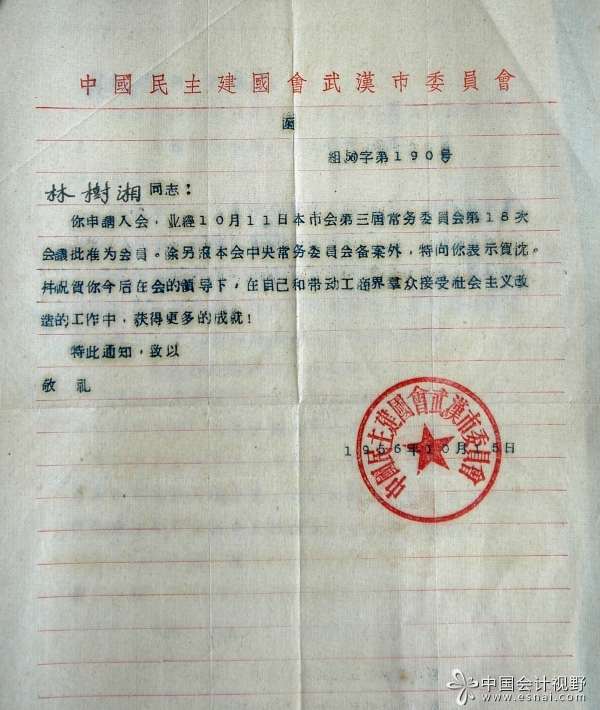 中國民主建國會武漢市委員會
函
組56字第190号
林樹湘同志：
你申請入会，业經10月11日本市会第三届常务委員会第18次
会議批准为会員。除另报本会中央常务委員会备案外，特向你表示賀忱。
幷祝賀你今后在会的領导下，在自己和带动工商界羣众接受社会主义改
造的工作中，获得更多的成就！
特此通知，致以
敬 礼
1956年10月15日
中國民主建國會武漢市委員會
中国会计视野
www.esnai.com